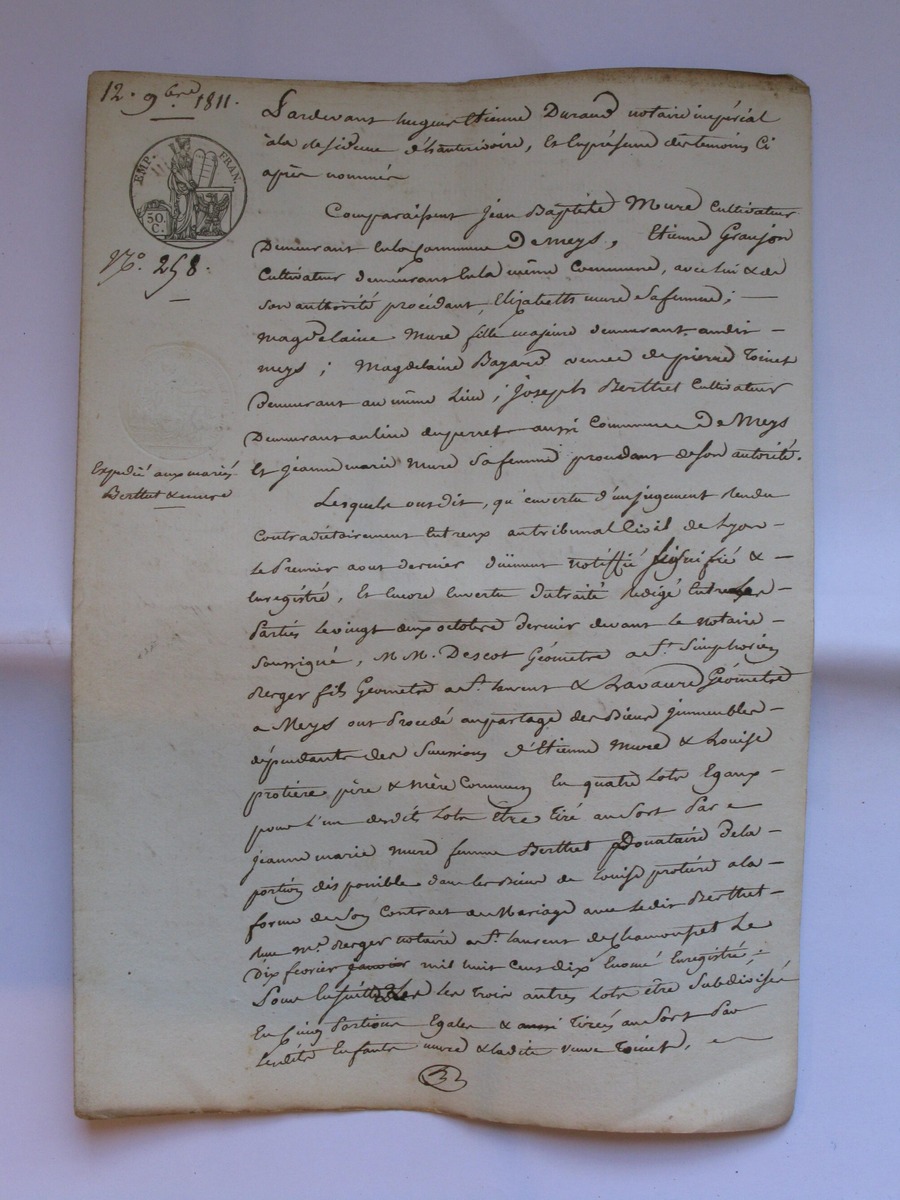 12. 9bre 1811.
EMP. FRAN.
50. C.
No. 258.
Expédié aux mariés
Berthet & mure
Pardevant hugues Etienne Durand notaire impérial
à la residence d'hauterivoire, et En présence des temoins Ci
après nommés
Comparaissent Jean Baptiste Mure Cultivateur
Demeurant En la Commune De Meys, Etienne Granjon
Cultivateur demeurant En la même Commune, avec lui & de
son authorité procédant, Elizabeth mure sa femme; —
magdelaine Mure fille majeure demeurant audit —
meys; Magdelaine Bayard veuve de pierre Toinet
Demeurant au même Lieu; Joseph Berthet Cultivateur
Demeurant au lieu du perret aussi Commune De Meys
Et jeanne marie Mure sa femme procédant de son autorité.
Lesquels ont dit, qu'en vertu d'un jugement rendu
Contradictairement Entreux au tribunal Civil de Lyon —
le Premier aout dernier düement notiffié signifié & —
Enregistré, Et encore En vertu du traité redigé Entre les —
Parties le vingt deux octobre dernier devant le Notaire —
soussigné, M.M. Descot Géomètre a St. Simphorien
Berger fils Géometre a St. laurent & Lavaure Géomètre
a Meys ont Procédé au partage des Biens jmmeubles —
dépendants des Successions d'Etienne Mure & Louise
protiere père & mère Communs En quatre Lots Egaux —
pour l'un desdits Lots Etre tiré au Sort Par
jeanne marie Mure femme Berthet Donataire de la —
portion disponible dans les Biens de Louise protiere a la
forme de Son Contrat de Mariage avec ledit Berthet —
reçu me. Berger notaire a St. laurent de Chamousset Le
Dix fevrier janvier mil huit Cent dix Enonce Enregistré;
Pour Ensuitte Les trois autres Lots être Subdivisés
En Cinq Portions Egales & aussi Tirés au Sort Par
lesdits Enfants mure & ladite veuve Toinet,